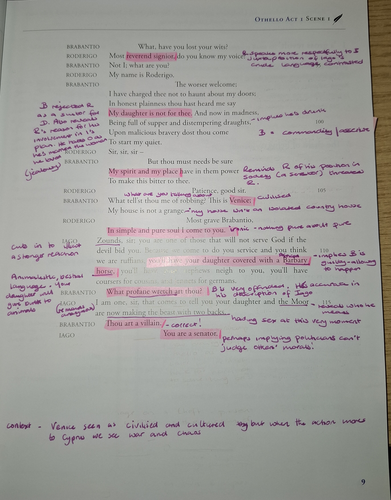 OTHELLO ACT 1 SCENE 1
BRABANTIO What, have you lost your wits?
RODERIGO Most reverend signior, do you know my voice?
R speaks more respectfully to B
juxtaposition of Iago's
crude language
BRABANTIO Not I: what are you?
RODERIGO My name is Roderigo.
BRABANTIO The worser welcome:
I have charged thee not to haunt about my doors;
In honest plainness thou hast heard me say
My daughter is not for thee. And now in madness,
Being full of supper and distempering draughts, - implies he's drunk
100
Upon malicious bravery dost thou come
To start my quiet.
B = commanding
B rejected R
as a suitor for
D. Also reveals
R's reason for his
he hates O as
he's
he loves
(jealousy)
RODERIGO Sir, sir, sir –
BRABANTIO But thou must needs be sure
My spirit and my place have in them power
To make this bitter to thee.
Reminds R of his position in
society (a senator) threatens
R.
RODERIGO Patience, good sir.
105
what are you talking about
BRABANTIO What tell'st thou me of robbing? This is Venice: civilised
My house is not a grange. - my house isn't an isolated country house
RODERIGO Most grave Brabantio,
In simple and pure soul I come to you.
cuts in to
a stronger reaction
IAGO Zounds, sir; you are one of those that will not serve God if the
devil bid you. Because we come to do you service and you think
110
we are ruffians, you'll have your daughter covered with a Barbary
horse, you'll have your nephews neigh to you, you'll have
coursers for cousins, and jennets for germans.
implies B is
to happen
Animalistic, bestial
language. Your
daughter will
give birth to
animals
BRABANTIO What profane wretch art thou?
B is very offended. His accurate in
his description of Iago
IAGO I am one, sir, that comes to tell you your daughter and the Moor
115
are now making the beast with two backs.
reveals what he
means
having sex at this very moment
BRABANTIO Thou art a villain. - correct!
IAGO You are a senator.
perhaps implying politicians can't
judge others' morals.
context - Venice seen as civilised and cultured but when the action moves
to Cyprus we see war and chaos
9